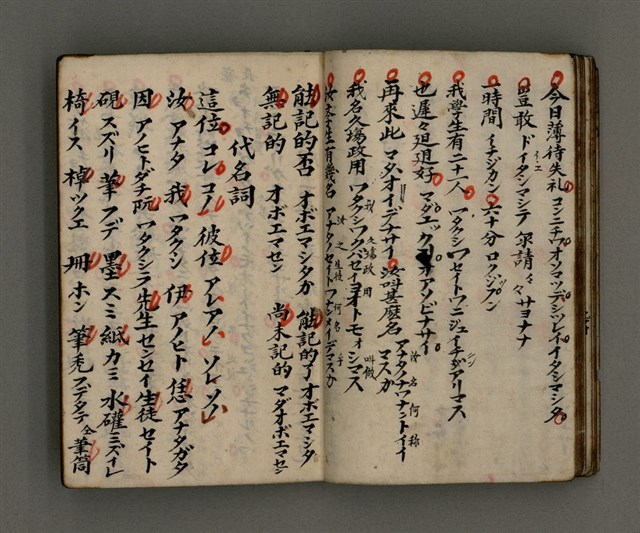 今日薄待失礼 コンニチワオソマツデシツレイイタシマシタ
豈敢 ドイタシマシテ 尔請々々 サヨナナ
一時間 イチジカン 六十分 ロクジップン
我學生有二十人 ワタクシノセイトワニジュイチガアリマス
也遲々迫迫好 マダユックオアソビナサイ
再來此 マタオイデナサイ 汝叫甚麽名 アナタノナワナントイイマスか
我名久塲政用 ワタクシワクバセイヨオトモオシマス
能記的否 オボエマシタか 能記的了 オボエマシタ
無記的 オボエマセン 尚未記的 マダオボエマセン
代名詞
這位 コレコノ 彼位 アレアノ ソレソノ
汝 アナタ 我 ワタクシ 伊 アノヒト 恁 アナタガタ
因 アノヒトダチ 阮 ワタクシラ 先生 センセイ 生徒 セイト
硯 スズリ 筆 フデ 墨 スミ 紙 カミ 水礶 ミズイレ
椅 イス 棹 ツクエ 册 ホン 筆禿 フデタテ 仝筆筒